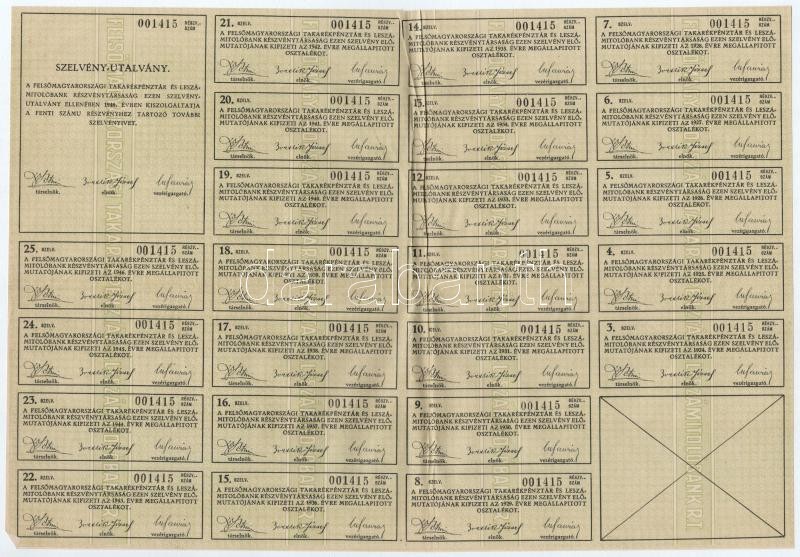 001415 RÉSZV.-SZÁM
SZELVÉNY-UTALVÁNY.
A FELSŐMAGYARORSZÁGI TAKARÉKPÉNZTÁR ÉS LESZÁ-
MITOLÓBANK RÉSZVÉNYTÁRSASÁG EZEN SZELVÉNY-
UTALVÁNY ELLENÉBEN 1946. ÉVBEN KISZOLGÁLTATJA
A FENTI SZÁMU RÉSZVÉNYHEZ TARTOZÓ TOVÁBBI
SZELVÉNYIVET.
társelnök. elnök. vezérigazgató.
25. SZELV. 001415 RÉSZV.-SZÁM
A FELSŐMAGYARORSZÁGI TAKARÉKPÉNZTÁR ÉS LESZÁ-
MITOLÓBANK RÉSZVÉNYTÁRSASÁG EZEN SZELVÉNY ELŐ-
MUTATÓJÁNAK KIFIZETI AZ 1946. ÉVRE MEGÁLLAPITOTT
OSZTALÉKOT.
társelnök. elnök. vezérigazgató.
24. SZELV. 001415 RÉSZV.-SZÁM
A FELSŐMAGYARORSZÁGI TAKARÉKPÉNZTÁR ÉS LESZÁ-
MITOLÓBANK RÉSZVÉNYTÁRSASÁG EZEN SZELVÉNY ELŐ-
MUTATÓJÁNAK KIFIZETI AZ 1945. ÉVRE MEGÁLLAPITOTT
OSZTALÉKOT.
társelnök. elnök. vezérigazgató.
23. SZELV. 001415 RÉSZV.-SZÁM
A FELSŐMAGYARORSZÁGI TAKARÉKPÉNZTÁR ÉS LESZÁ-
MITOLÓBANK RÉSZVÉNYTÁRSASÁG EZEN SZELVÉNY ELŐ-
MUTATÓJÁNAK KIFIZETI AZ 1944. ÉVRE MEGÁLLAPITOTT
OSZTALÉKOT.
társelnök. elnök. vezérigazgató.
22. SZELV. 001415 RÉSZV.-SZÁM
A FELSŐMAGYARORSZÁGI TAKARÉKPÉNZTÁR ÉS LESZÁ-
MITOLÓBANK RÉSZVÉNYTÁRSASÁG EZEN SZELVÉNY ELŐ-
MUTATÓJÁNAK KIFIZETI AZ 1943. ÉVRE MEGÁLLAPITOTT
OSZTALÉKOT.
társelnök. elnök. vezérigazgató.
21. SZELV. 001415 RÉSZV.-SZÁM
A FELSŐMAGYARORSZÁGI TAKARÉKPÉNZTÁR ÉS LESZÁ-
MITOLÓBANK RÉSZVÉNYTÁRSASÁG EZEN SZELVÉNY ELŐ-
MUTATÓJÁNAK KIFIZETI AZ 1942. ÉVRE MEGÁLLAPITOTT
OSZTALÉKOT.
társelnök. elnök. vezérigazgató.
20. SZELV. 001415 RÉSZV.-SZÁM
A FELSŐMAGYARORSZÁGI TAKARÉKPÉNZTÁR ÉS LESZÁ-
MITOLÓBANK RÉSZVÉNYTÁRSASÁG EZEN SZELVÉNY ELŐ-
MUTATÓJÁNAK KIFIZETI AZ 1941. ÉVRE MEGÁLLAPITOTT
OSZTALÉKOT.
társelnök. elnök. vezérigazgató.
19. SZELV. 001415 RÉSZV.-SZÁM
A FELSŐMAGYARORSZÁGI TAKARÉKPÉNZTÁR ÉS LESZÁ-
MITOLÓBANK RÉSZVÉNYTÁRSASÁG EZEN SZELVÉNY ELŐ-
MUTATÓJÁNAK KIFIZETI AZ 1940. ÉVRE MEGÁLLAPITOTT
OSZTALÉKOT.
társelnök. elnök. vezérigazgató.
18. SZELV. 001415 RÉSZV.-SZÁM
A FELSŐMAGYARORSZÁGI TAKARÉKPÉNZTÁR ÉS LESZÁ-
MITOLÓBANK RÉSZVÉNYTÁRSASÁG EZEN SZELVÉNY ELŐ-
MUTATÓJÁNAK KIFIZETI AZ 1939. ÉVRE MEGÁLLAPITOTT
OSZTALÉKOT.
társelnök. elnök. vezérigazgató.
17. SZELV. 001415 RÉSZV.-SZÁM
A FELSŐMAGYARORSZÁGI TAKARÉKPÉNZTÁR ÉS LESZÁ-
MITOLÓBANK RÉSZVÉNYTÁRSASÁG EZEN SZELVÉNY ELŐ-
MUTATÓJÁNAK KIFIZETI AZ 1938. ÉVRE MEGÁLLAPITOTT
OSZTALÉKOT.
társelnök. elnök. vezérigazgató.
16. SZELV. 001415 RÉSZV.-SZÁM
A FELSŐMAGYARORSZÁGI TAKARÉKPÉNZTÁR ÉS LESZÁ-
MITOLÓBANK RÉSZVÉNYTÁRSASÁG EZEN SZELVÉNY ELŐ-
MUTATÓJÁNAK KIFIZETI AZ 1937. ÉVRE MEGÁLLAPITOTT
OSZTALÉKOT.
társelnök. elnök. vezérigazgató.
15. SZELV. 001415 RÉSZV.-SZÁM
A FELSŐMAGYARORSZÁGI TAKARÉKPÉNZTÁR ÉS LESZÁ-
MITOLÓBANK RÉSZVÉNYTÁRSASÁG EZEN SZELVÉNY ELŐ-
MUTATÓJÁNAK KIFIZETI AZ 1936. ÉVRE MEGÁLLAPITOTT
OSZTALÉKOT.
társelnök. elnök. vezérigazgató.
14. SZELV. 001415 RÉSZV.-SZÁM
A FELSŐMAGYARORSZÁGI TAKARÉKPÉNZTÁR ÉS LESZÁ-
MITOLÓBANK RÉSZVÉNYTÁRSASÁG EZEN SZELVÉNY ELŐ-
MUTATÓJÁNAK KIFIZETI AZ 1935. ÉVRE MEGÁLLAPITOTT
OSZTALÉKOT.
társelnök. elnök. vezérigazgató.
13. SZELV. 001415 RÉSZV.-SZÁM
A FELSŐMAGYARORSZÁGI TAKARÉKPÉNZTÁR ÉS LESZÁ-
MITOLÓBANK RÉSZVÉNYTÁRSASÁG EZEN SZELVÉNY ELŐ-
MUTATÓJÁNAK KIFIZETI AZ 1934. ÉVRE MEGÁLLAPITOTT
OSZTALÉKOT.
társelnök. elnök. vezérigazgató.
12. SZELV. 001415 RÉSZV.-SZÁM
A FELSŐMAGYARORSZÁGI TAKARÉKPÉNZTÁR ÉS LESZÁ-
MITOLÓBANK RÉSZVÉNYTÁRSASÁG EZEN SZELVÉNY ELŐ-
MUTATÓJÁNAK KIFIZETI AZ 1933. ÉVRE MEGÁLLAPITOTT
OSZTALÉKOT.
társelnök. elnök. vezérigazgató.
11. SZELV. 001415 RÉSZV.-SZÁM
A FELSŐMAGYARORSZÁGI TAKARÉKPÉNZTÁR ÉS LESZÁ-
MITOLÓBANK RÉSZVÉNYTÁRSASÁG EZEN SZELVÉNY ELŐ-
MUTATÓJÁNAK KIFIZETI AZ 1932. ÉVRE MEGÁLLAPITOTT
OSZTALÉKOT.
társelnök. elnök. vezérigazgató.
10. SZELV. 001415 RÉSZV.-SZÁM
A FELSŐMAGYARORSZÁGI TAKARÉKPÉNZTÁR ÉS LESZÁ-
MITOLÓBANK RÉSZVÉNYTÁRSASÁG EZEN SZELVÉNY ELŐ-
MUTATÓJÁNAK KIFIZETI AZ 1931. ÉVRE MEGÁLLAPITOTT
OSZTALÉKOT.
társelnök. elnök. vezérigazgató.
9. SZELV. 001415 RÉSZV.-SZÁM
A FELSŐMAGYARORSZÁGI TAKARÉKPÉNZTÁR ÉS LESZÁ-
MITOLÓBANK RÉSZVÉNYTÁRSASÁG EZEN SZELVÉNY ELŐ-
MUTATÓJÁNAK KIFIZETI AZ 1930. ÉVRE MEGÁLLAPITOTT
OSZTALÉKOT.
társelnök. elnök. vezérigazgató.
8. SZELV. 001415 RÉSZV.-SZÁM
A FELSŐMAGYARORSZÁGI TAKARÉKPÉNZTÁR ÉS LESZÁ-
MITOLÓBANK RÉSZVÉNYTÁRSASÁG EZEN SZELVÉNY ELŐ-
MUTATÓJÁNAK KIFIZETI AZ 1929. ÉVRE MEGÁLLAPITOTT
OSZTALÉKOT.
társelnök. elnök. vezérigazgató.
7. SZELV. 001415 RÉSZV.-SZÁM
A FELSŐMAGYARORSZÁGI TAKARÉKPÉNZTÁR ÉS LESZÁ-
MITOLÓBANK RÉSZVÉNYTÁRSASÁG EZEN SZELVÉNY ELŐ-
MUTATÓJÁNAK KIFIZETI AZ 1928. ÉVRE MEGÁLLAPITOTT
OSZTALÉKOT.
társelnök. elnök. vezérigazgató.
6. SZELV. 001415 RÉSZV.-SZÁM
A FELSŐMAGYARORSZÁGI TAKARÉKPÉNZTÁR ÉS LESZÁ-
MITOLÓBANK RÉSZVÉNYTÁRSASÁG EZEN SZELVÉNY ELŐ-
MUTATÓJÁNAK KIFIZETI AZ 1927. ÉVRE MEGÁLLAPITOTT
OSZTALÉKOT.
társelnök. elnök. vezérigazgató.
5. SZELV. 001415 RÉSZV.-SZÁM
A FELSŐMAGYARORSZÁGI TAKARÉKPÉNZTÁR ÉS LESZÁ-
MITOLÓBANK RÉSZVÉNYTÁRSASÁG EZEN SZELVÉNY ELŐ-
MUTATÓJÁNAK KIFIZETI AZ 1926. ÉVRE MEGÁLLAPITOTT
OSZTALÉKOT.
társelnök. elnök. vezérigazgató.
4. SZELV. 001415 RÉSZV.-SZÁM
A FELSŐMAGYARORSZÁGI TAKARÉKPÉNZTÁR ÉS LESZÁ-
MITOLÓBANK RÉSZVÉNYTÁRSASÁG EZEN SZELVÉNY ELŐ-
MUTATÓJÁNAK KIFIZETI AZ 1925. ÉVRE MEGÁLLAPITOTT
OSZTALÉKOT.
társelnök. elnök. vezérigazgató.
3. SZELV. 001415 RÉSZV.-SZÁM
A FELSŐMAGYARORSZÁGI TAKARÉKPÉNZTÁR ÉS LESZÁ-
MITOLÓBANK RÉSZVÉNYTÁRSASÁG EZEN SZELVÉNY ELŐ-
MUTATÓJÁNAK KIFIZETI AZ 1924. ÉVRE MEGÁLLAPITOTT
OSZTALÉKOT.
társelnök. elnök. vezérigazgató.
darabanth